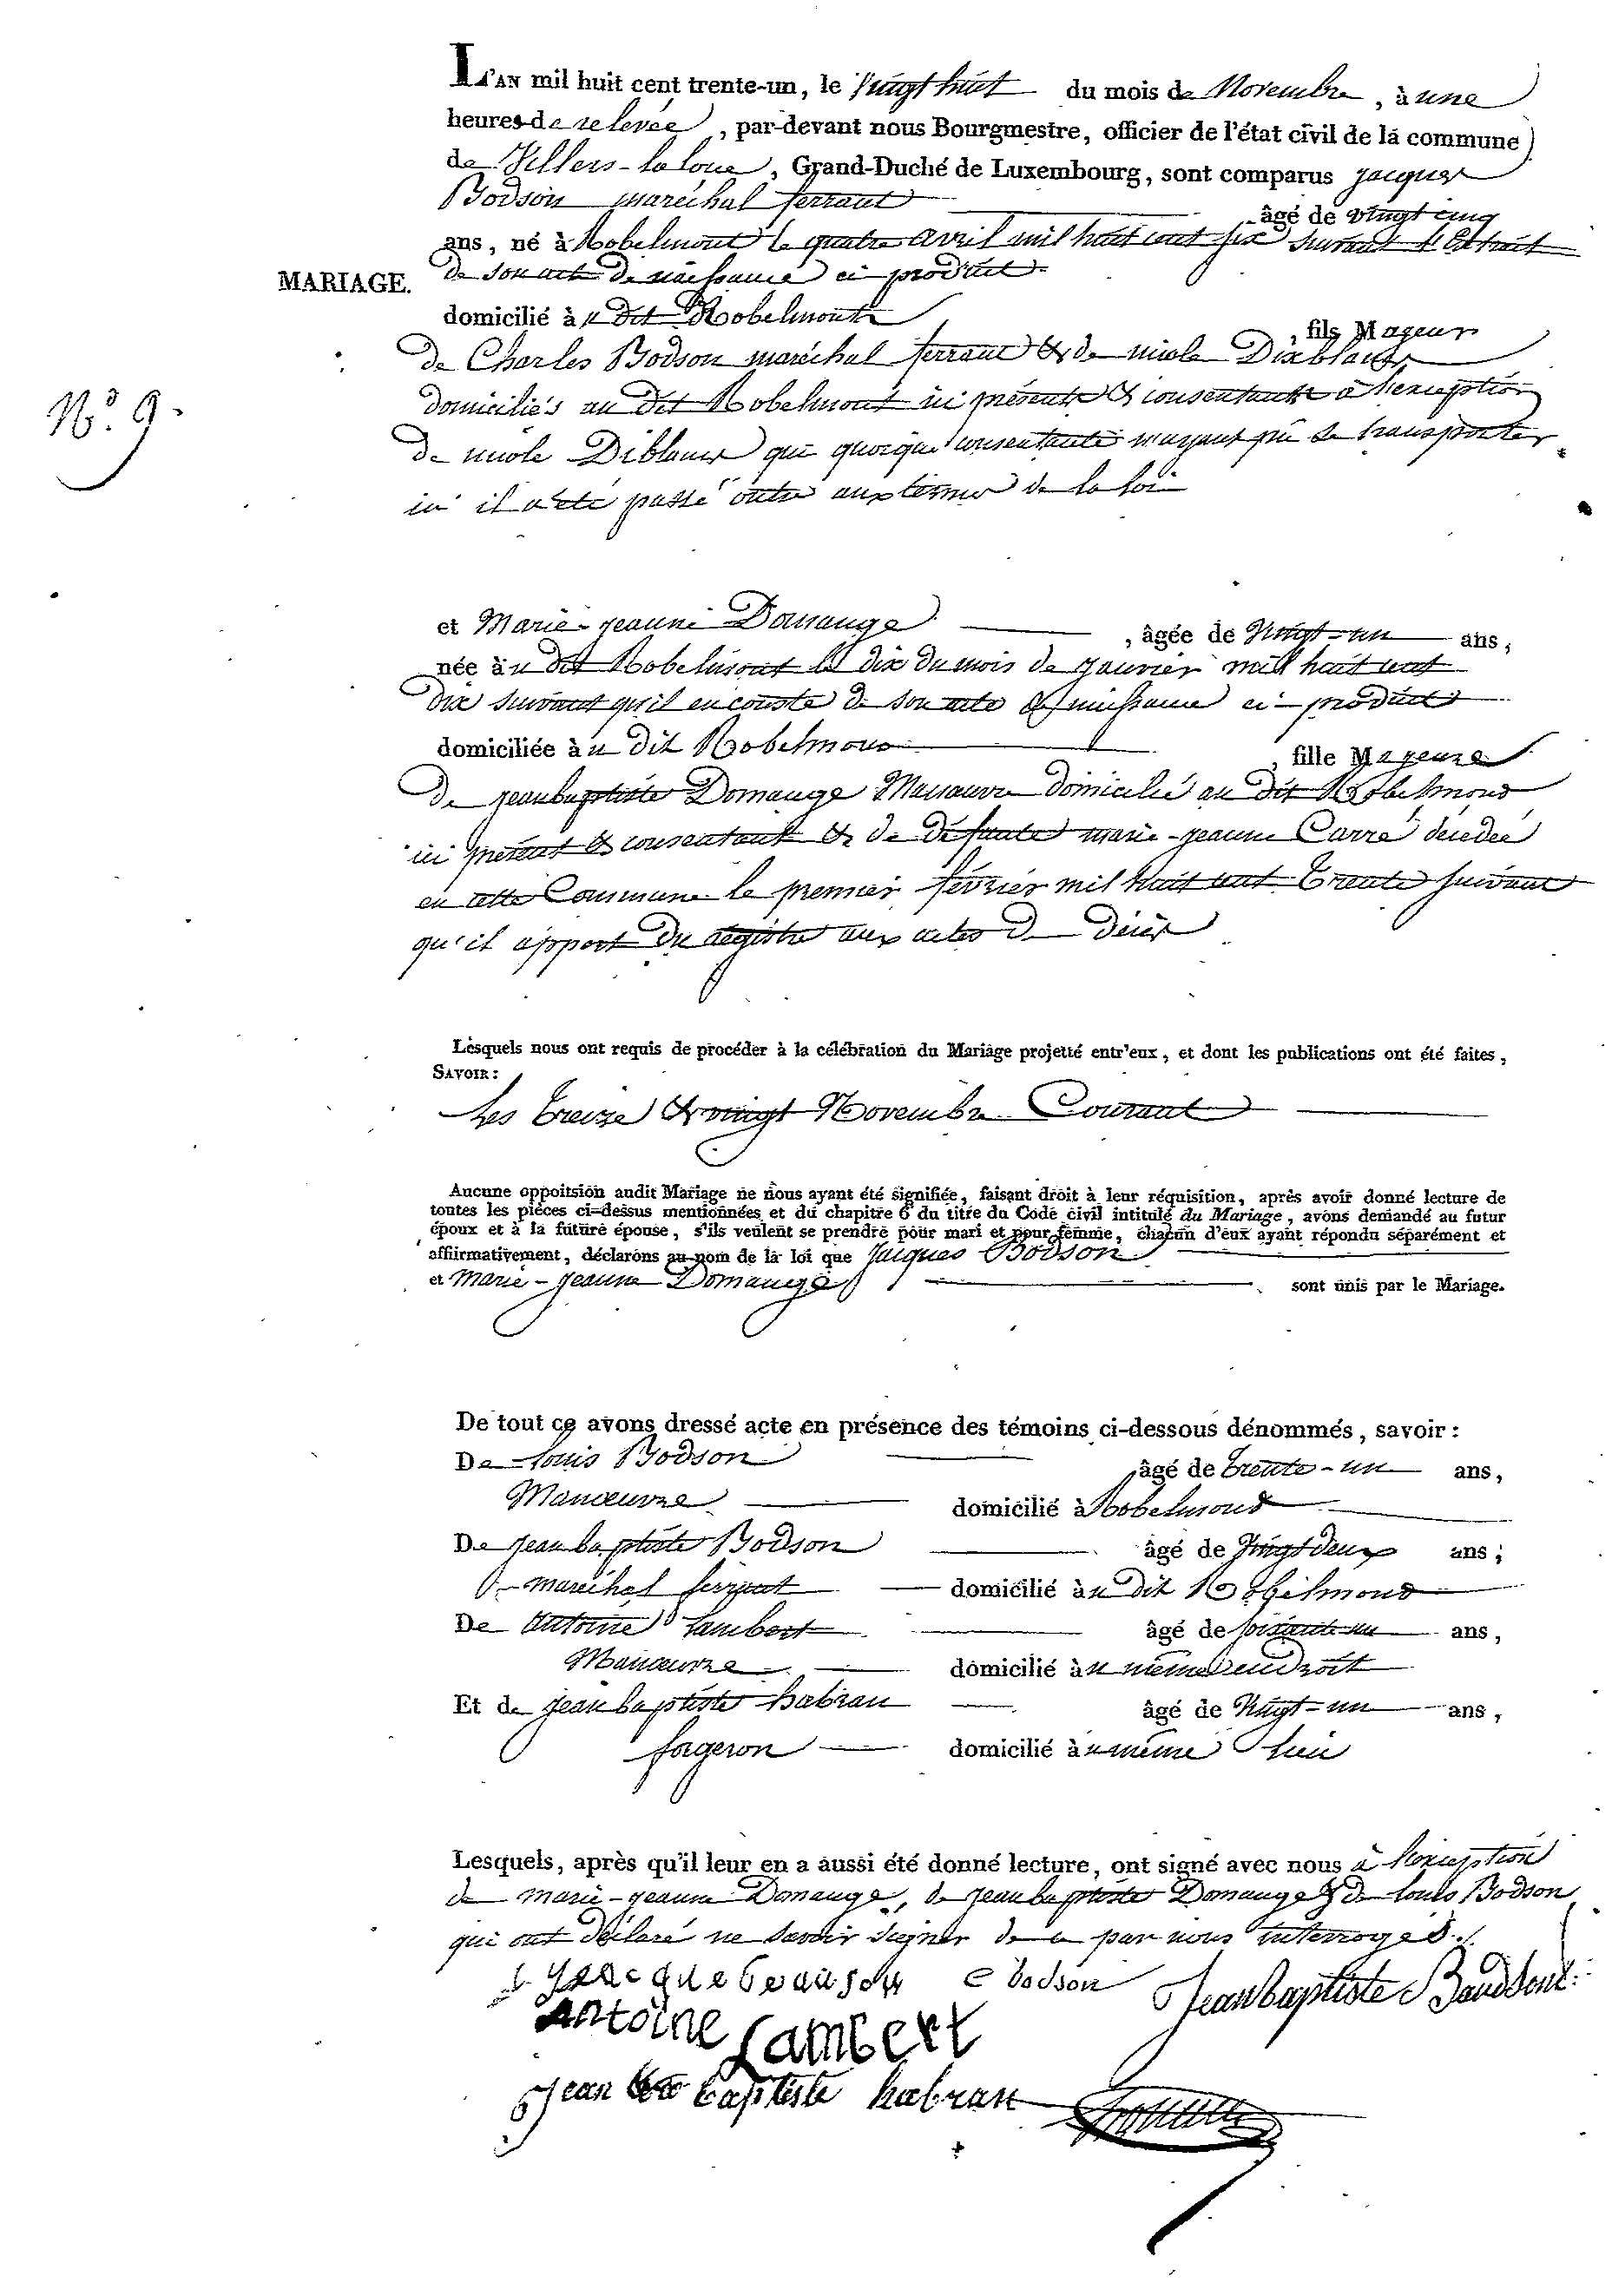 L'AN mil huit cent trente-un, le vingt huit du mois de Novembre, à une
heures de relevée, par-devant nous Bourgmestre, officier de l'état civil de la commune
de Villers-la loue, Grand-Duché de Luxembourg, sont comparus jacques
Bodson maréchal ferrant âgé de vingt cinq
ans, né à Robelmont le quatre avril mil huit cent six suivant l'Extrait
MARIAGE. de son acte de naissance ci produit
domicilié à u dit Robelmont , fils Majeur
de Charles Bodson maréchal ferrant & de nicole Diablaux
N° 9.
domiciliés au dit Robelmont ici présents & consentants à l'exception
de nicole Diblaux qui quoique consentante n'ayant pu se transporter
ici il a été passé outre aux termes de la loi
et Marie-jeanne Domange , âgée de Vingt-un ans,
née à u dit Robelmont le dix du mois de janvier mil huit cent
dix suivant qu'il en conste de son acte de naissance ci-produit
domiciliée à u dit Robelmont , fille Majeure
de jean baptiste Domange Manœuvre domicilié au dit Robelmont
ici présent & consentant & de défunte marie-jeanne Carré décedée
en cette Commune le premier février mil huit cent Trente suivant
qu'il appert du registre aux actes de décès
Lesquels nous ont requis de procéder à la célébration du Mariage projetté entr'eux, et dont les publications ont été faites,
SAVOIR:
Les treize & vingt Novembre Courant
Aucune oppoitsion audit Mariage ne nous ayant été signifiée, faisant droit à leur réquisition, après avoir donné lecture de
toutes les pièces ci-dessus mentionnées et du chapitre 6 du titre du Code civil intitulé du Mariage, avons demandé au futur
époux et à la future épouse, s'ils veulent se prendre pour mari et pour femme, chacun d'eux ayant répondu séparément et
affiirmativement, déclarons au nom de la loi que Jacques Bodson
et Marie-jeanne Domange sont unis par le Mariage.
De tout ce avons dressé acte en présence des témoins ci-dessous dénommés, savoir:
De Louis Bodson âgé de trente-un ans,
Manœuvre domicilié à Robelmont
De jean baptiste Bodson âgé de Vingt deux ans;
maréchal ferrant domicilié à u dit Robelmont
De antoine Lambert âgé de soixante un ans,
Manœuvre domicilié à u même endroit
Et de jean baptiste habran âgé de Vingt-un ans,
forgeron domicilié à u même lieu
Lesquels, après qu'il leur en a aussi été donné lecture, ont signé avec nous à l'exception
de marie-jeanne Domange, de jean baptiste Domange & de Louis Bodson
qui ont déclaré ne savoir signer de ce par nous interrogés.
C bodson Jean baptiste Baudson
Antoine Lambert
jean baptiste habran